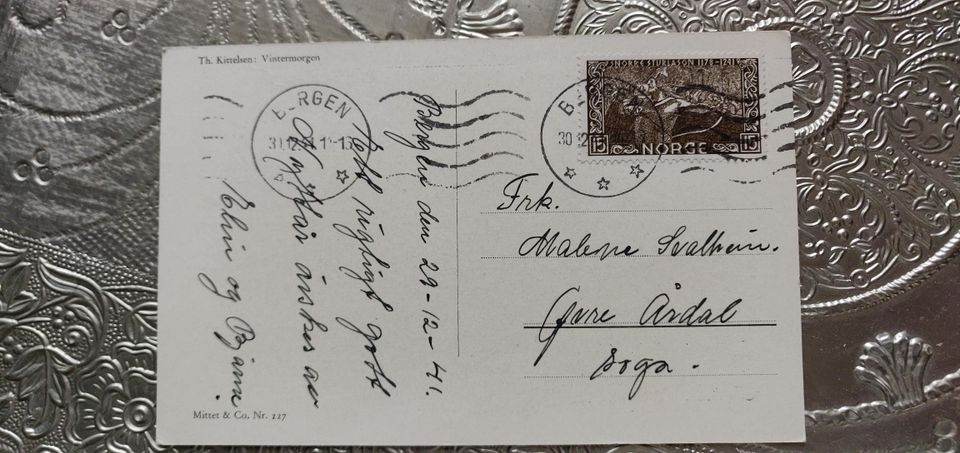 Th. Kittelsen: Vintermorgen
Bergen den 29-12-41.
Et riktigt godt
Nyttår ønskes av
Elin og Bjarne
Mittet & Co. Nr. 227
BERGEN
30.12.41.1-13
SNORRE STURLASON 1178-1241
15 NORGE 15
BERGEN
30 12
Frk.
Malene Svalheim.
Øvre Årdal
Sogn.